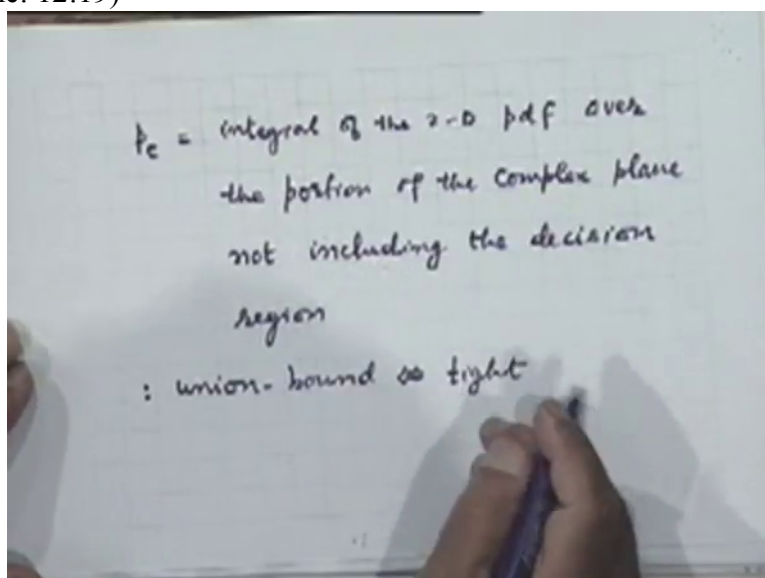 12:19)
Pe = integral of the 2-D pdf over
the portion of the complex plane
not including the decision
region
: union-bound is tight